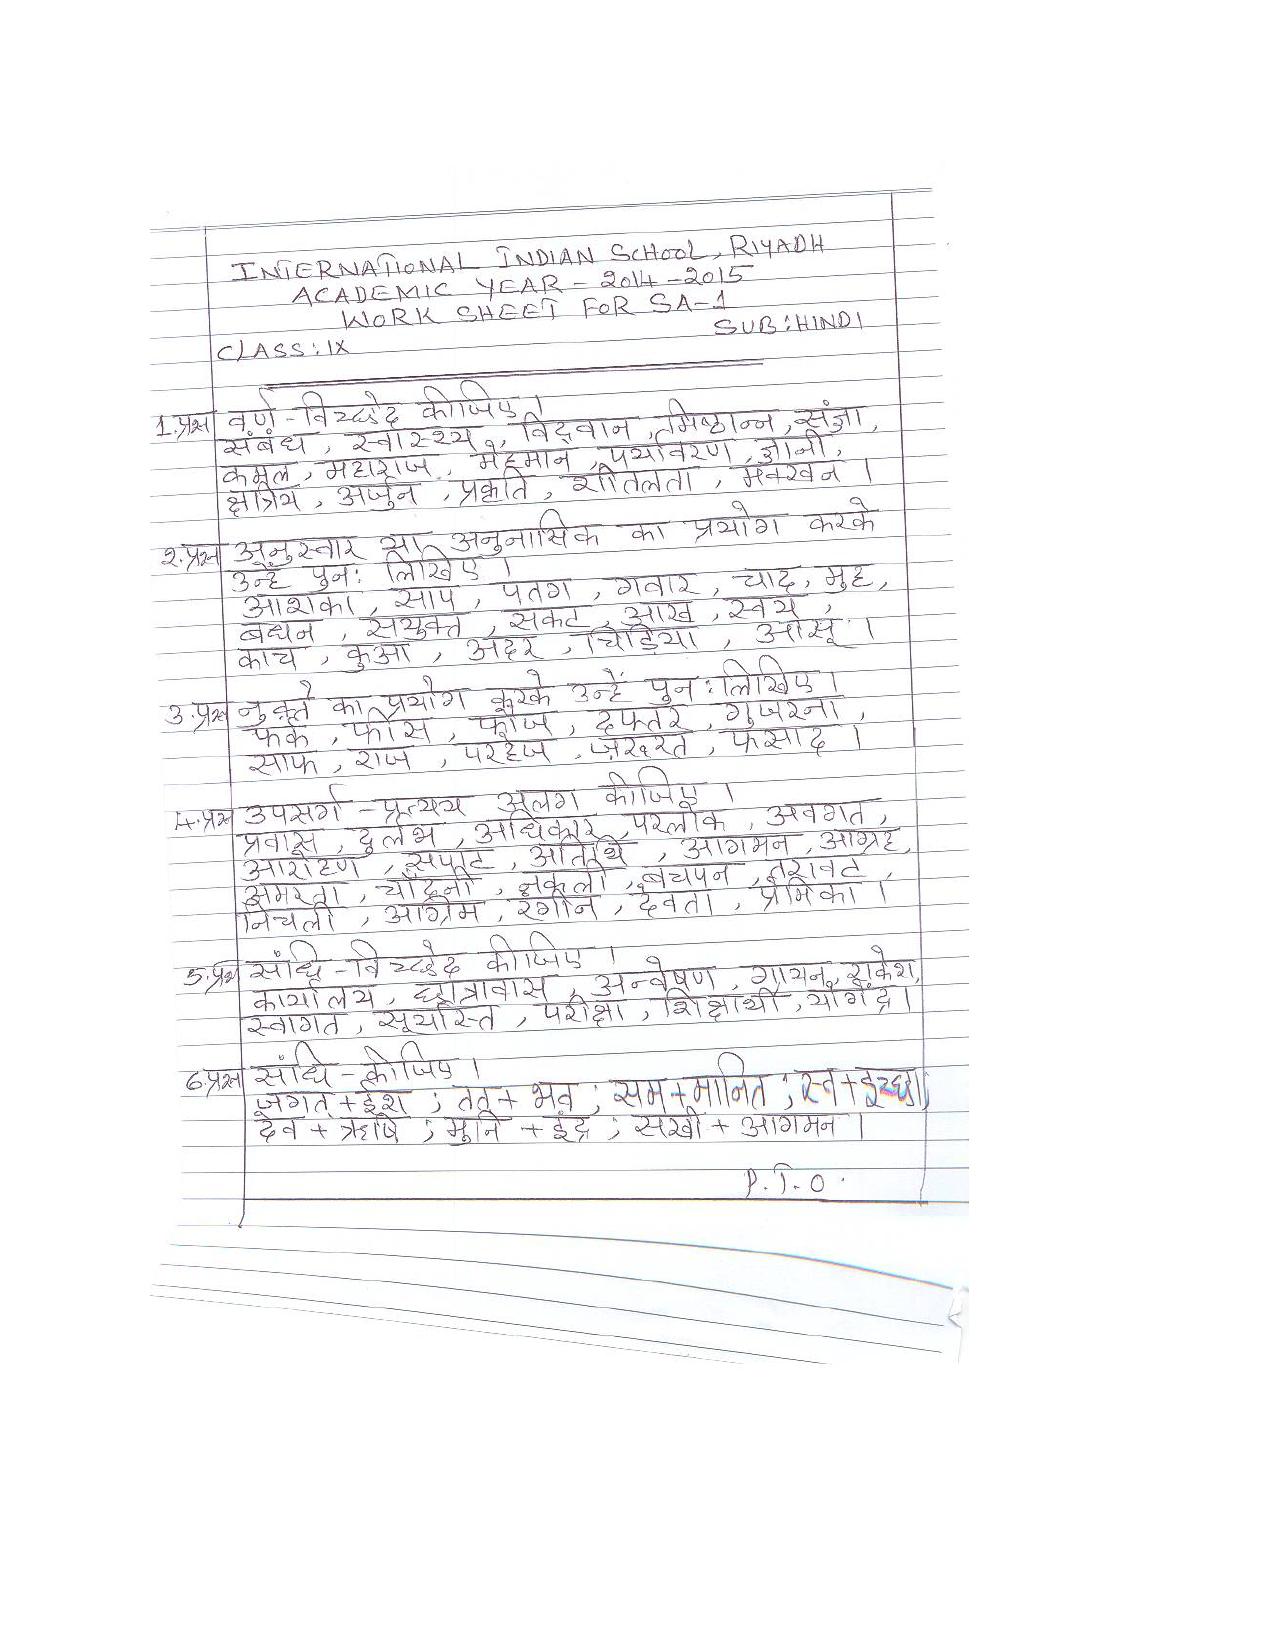 INTERNATIONAL INDIAN SCHOOL, RIYADH
ACADEMIC YEAR - 2014 - 2015
WORK SHEET FOR SA-1
SUB:HINDI
CLASS: IX
1.प्रश्न वर्ण - विच्छेद कीजिए।
संबंध, स्वास्थ्य, विद्वान, मिष्ठान्न, संज्ञा,
कमल, महाराज, मेहमान, पर्यावरण, ज्ञानी,
क्षत्रिय, अर्जुन, प्रकृति, शीतलता, मक्खन।
२.प्रश्न अनुस्वार या अनुनासिक का प्रयोग करके
उन्हें पुनः लिखिए।
आशका, साप, पतग, गवार, चाद, मुह,
बधन, सयुक्त, सकट, आख, स्वय,
काच, कुआ, अदर, चिड़िया, आसू।
३.प्रश्न नुक़्ते का प्रयोग करके उन्हें पुनः लिखिए।
फर्क, फीस, फौज, दफ्तर, गुजरना,
साफ, राज, परहेज, ज़रूरत, फसाद।
4.प्रश्न उपसर्ग - प्रत्यय अलग कीजिए।
प्रवास, दुर्लभ, अधिकार, परलोक, अवगत,
आरोहण, सपाट, अतिथि, आगमन, आग्रह,
अमरता, चाँदनी, नकली, बचपन, तरावट,
निचली, अग्रिम, रंगीन, देवता, प्रेमिका।
5.प्रश्न संधि - विच्छेद कीजिए।
कार्यालय, छात्रावास, अन्वेषण, गायन, राकेश,
स्वागत, सूर्यास्त, परीक्षा, शिक्षार्थी, योगेंद्र।
6.प्रश्न संधि - कीजिए।
जगत् + ईश; तत् + भव; सम + मानित; स्व + इच्छा;
देव + ऋषि; मुनि + इंद्र; सखी + आगमन।
P.T.O.